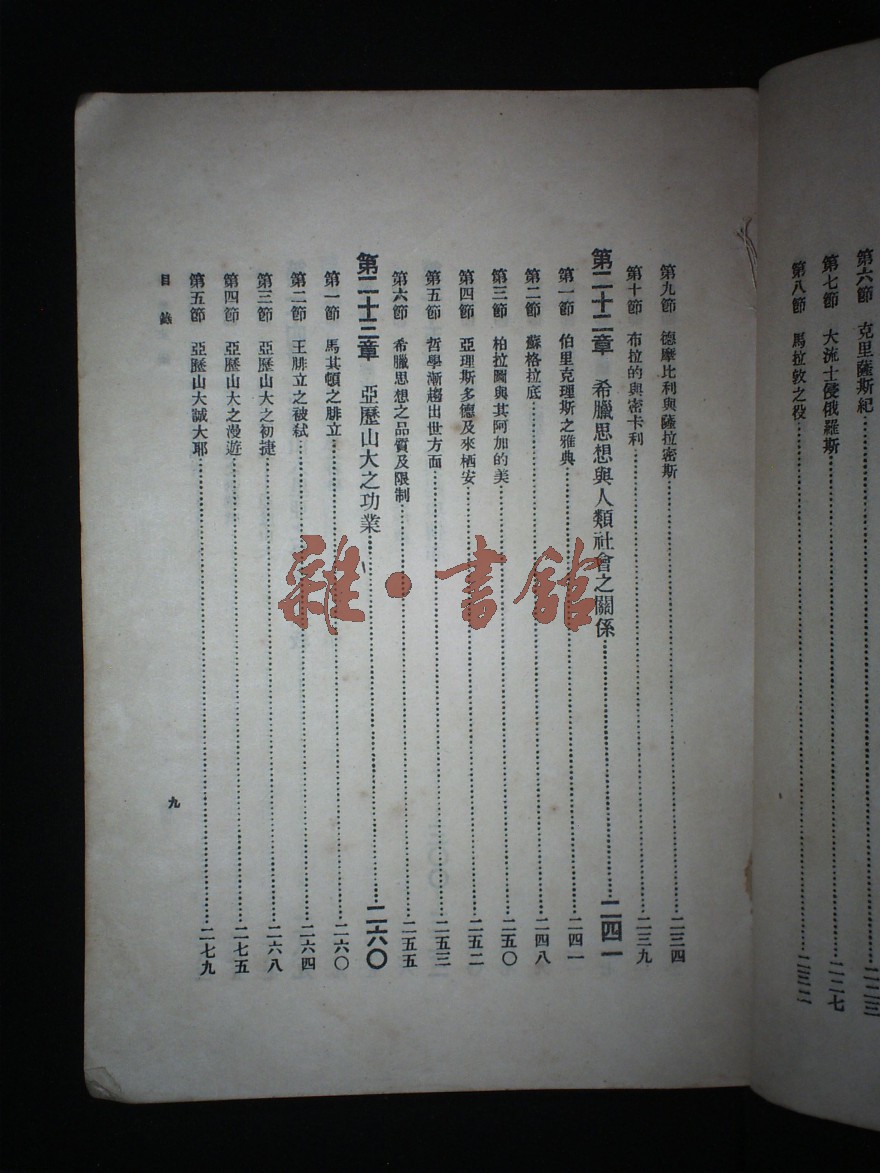 第六節　克里薩斯紀……二二三
第七節　大流士侵俄羅斯……二二七
第八節　馬拉敦之役……二三二
第九節　德摩比利與薩拉密斯……二三四
第十節　布拉的與密卡利……二三九
第二十二章　希臘思想與人類社會之關係……二四一
第一節　伯里克理斯之雅典……二四一
第二節　蘇格拉底……二四八
第三節　柏拉圖與其阿加的美……二五〇
第四節　亞理斯多德及來栖安……二五二
第五節　哲學漸趨出世方面……二五三
第六節　希臘思想之品質及限制……二五五
第二十三章　亞歷山大之功業……二六〇
第一節　馬其頓之腓立……二六〇
第二節　王腓立之被弒……二六四
第三節　亞歷山大之初捷……二六八
第四節　亞歷山大之漫遊……二七五
第五節　亞歷山大誠大耶……二七九
目錄
九
雜·書館